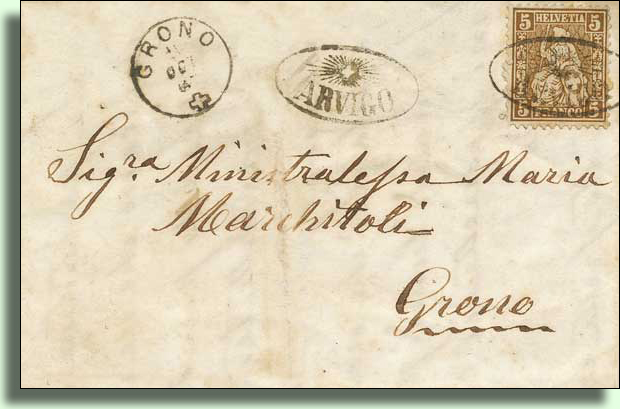 GRONO
OCT
ARVIGO
5 HELVETIA 5
5 FRANCO 5
Sig.ra Ministralessa Maria
Marchitoli
Grono